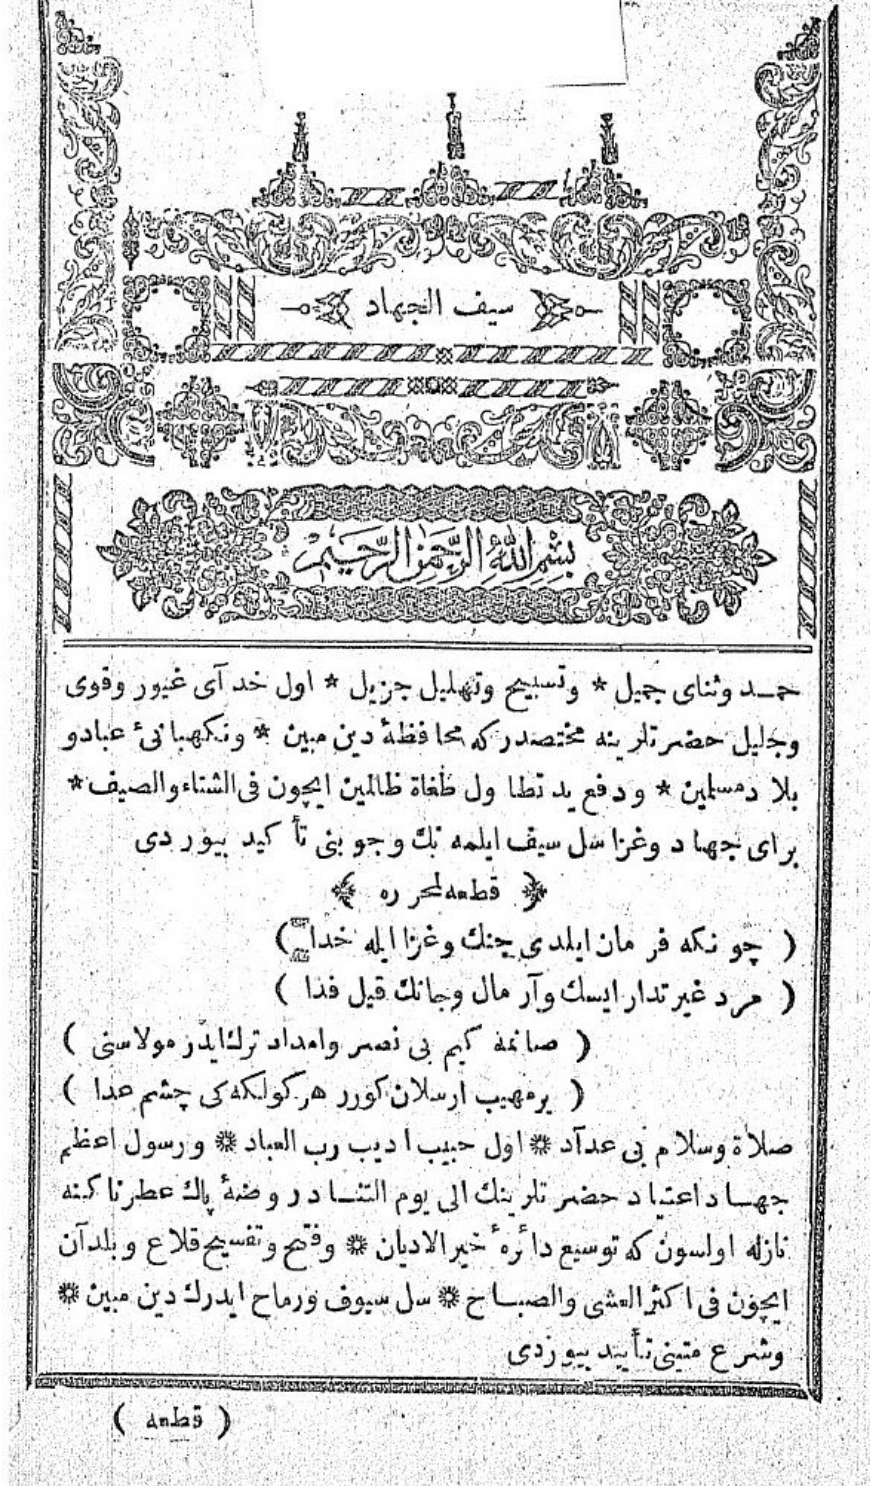 سيف الجهاد
بِسْمِ اللّٰهِ الرَّحْمٰنِ الرَّحِيمِ
حمد وثنای جميل * وتسبيح وتهليل جزيل * اول خدآی غيور وقوی
وجليل حضرتلرينه مختصدركه محافظۀ دين مبين * ونكهبانئ عبادو
بلاد مسلمين * ودفع يد تطاول طغاة ظالمين ايچون فی الشتاء والصيف *
برای جهاد وغزا سل سيف ايلمه نك وجوبنی تأكيد بيوردی
﴿ قطعه لمحرره ﴾
( چونكه فرمان ايلدی جنك وغزا ايله خدا )
( مرد غيرتدار ايسك وآر مال وجانك قيل فدا )
( صانمه كيم بی نصر وامداد ترك ايدر مولاسنی )
( برمهيب ارسلان كورر هر كولكه كی چشم عدا )
صلاة وسلام بی عدآد * اول حبيب اديب رب العباد * ورسول اعظم
جهاد اعتياد حضرتلرينك الی يوم التناد روضۀ پاك عطرناكنه
نازله اولسون كه توسيع دائرهٔ خير الاديان * وفتح وتفسيح قلاع وبلدآن
ايچون فی اكثر العشی والصباح * سل سيوف ورماح ايدرك دين مبين *
وشرع متينی تأييد بيوردی
( قطعه )